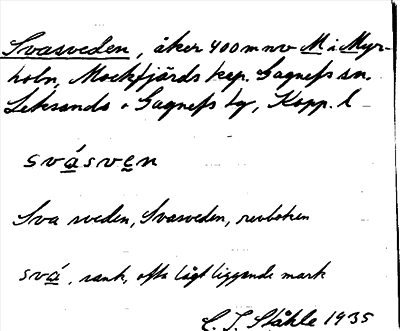 Svasveden, åker 400 m nv M i Myr-
holn, Mockfjärds kap. Gagnefs sn,
Leksands o Gagnefs tg, Kopp. l
svásven
Sva sveden, Svasveden, revboken
svá, sank, ofta lågt liggande mark
C. I. Ståhle 1935